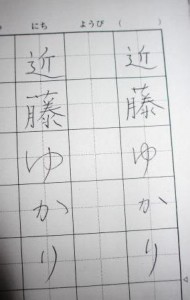 にち ようび ( )
近藤ゆかり
近藤ゆかり